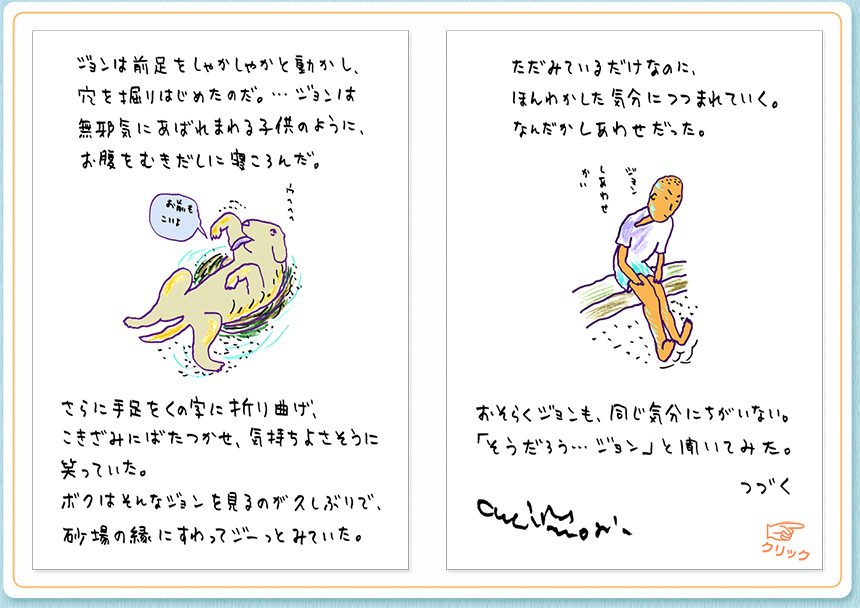 ジョンは前足をしゃかしゃかと動かし、
穴を掘りはじめたのだ。…ジョンは
無邪気にあばれまわる子供のように、
お腹をむきだしに寝ころんだ。
お前も
こいよ
ウゥゥゥ
さらに手足をくの字に折り曲げ、
こきざみにばたつかせ、気持ちよさそうに
笑っていた。
ボクはそんなジョンを見るのが久しぶりで、
砂場の縁にすわってジーっとみていた。
ただみているだけなのに、
ほんわかした気分につつまれていく。
なんだかしあわせだった。
ジョン
しあわせ
かい
おそらくジョンも、同じ気分にちがいない。
「そうだろう…ジョン」と聞いてみた。
つづく
クリック